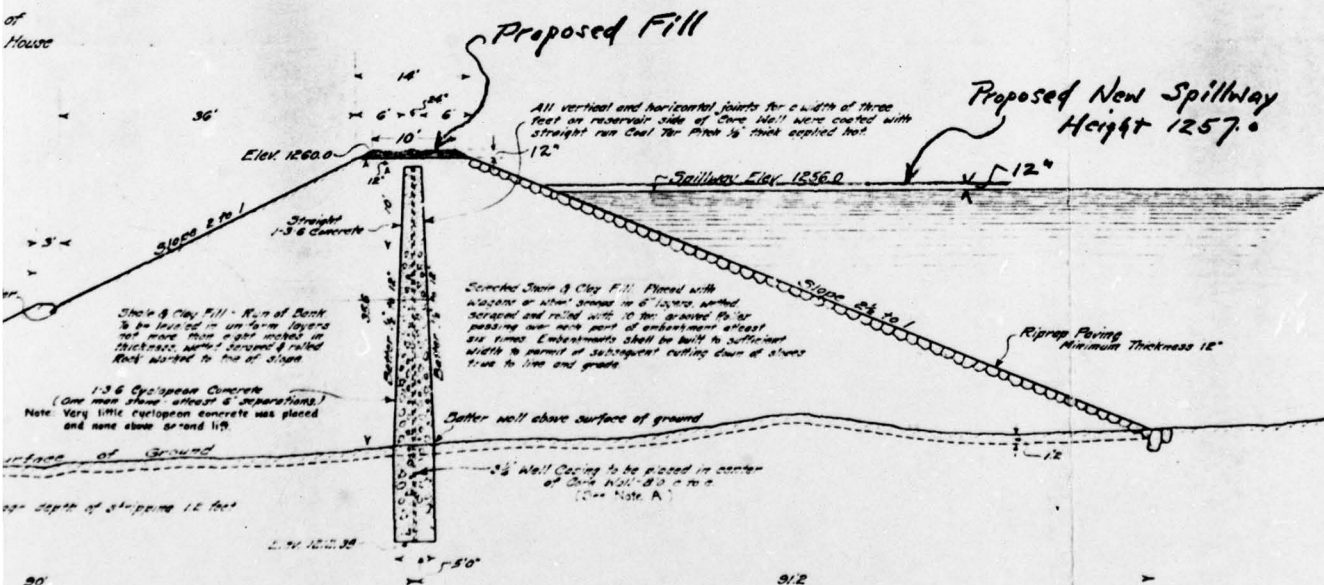 of
House
Proposed Fill
14'
36'
6' 24" 6'
10'
All vertical and horizontal joints for a width of three
feet on reservoir side of Core Wall were coated with
straight run Coal Tar Pitch ⅛" thick applied hot.
Proposed New Spillway
Height 1257.0
Elev. 1260.0
12"
12"
Spillway Elev. 1256.0
12"
10'
Straight
1-3-6 Concrete
Slope 2 to 1
3'
Shale & Clay Fill - Run of Bank
To be leveled in uniform layers
not more than eight inches in
thickness, wetted scraped & rolled
Rock worked to toe of slope.
Selected Shale & Clay Fill. Placed with
wagons or wheel scraps in 6" layers, wetted
scraped and rolled with 10 ton grooved Roller
passing over each part of embankment atleast
six times. Embankments shall be built to sufficient
width to permit of subsequent cutting down of slopes
true to line and grade.
Slope 2½ to 1
Riprap Paving
Minimum Thickness 12"
Batter
Batter
1-3-6 Cyclopean Concrete
(One man stone - atleast 6" separations.)
Note: Very little cyclopean concrete was placed
and none above second lift.
Batter wall above surface of ground
Surface of Ground
Well Casing to be placed in center
of Core Wall - 8'0" c to c.
(See Note A)
depth of stripping 1.2 feet
1.2
5'0"
90'
91.2